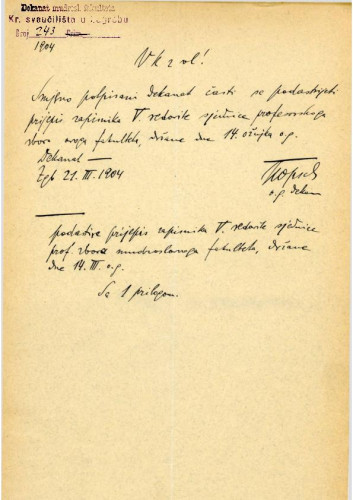 Dekanat mudrosl. fakulteta
Kr. sveučilišta u Zagrebu
Broj 243
1904
V k z vl!
Smjerno potpisani Dekanat časti se podastrijeti
prijepis zapisnika V. redovite sjednice profesorskoga
zbora ovoga fakulteta, držane dne 14. ožujka o.g.
Dekanat —
Zgb 21. III. 1904
o.g. dekan
podastire prijepis zapisnika V. redovite sjednice
prof. zbora mudroslovnoga fakulteta, držane
dne 14. III. o.g.
Sa 1 prilogom.